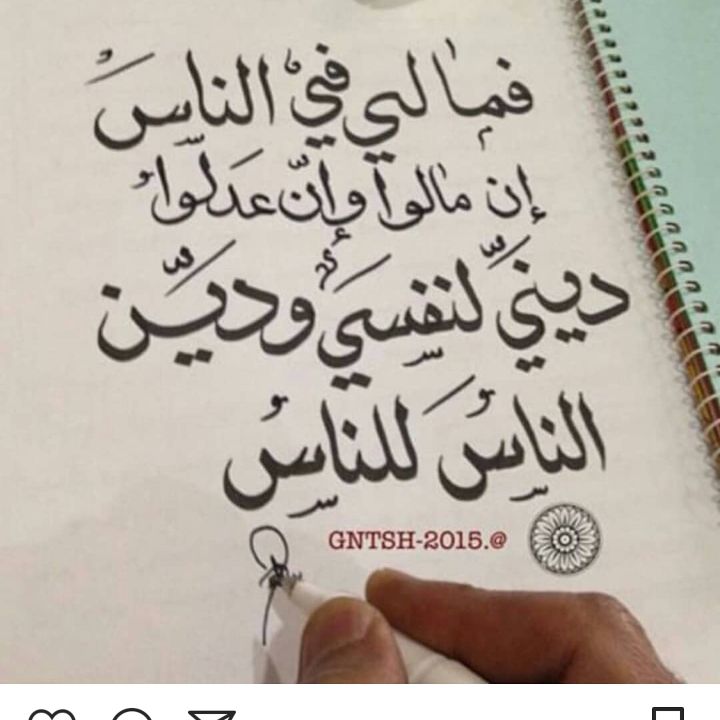 فما لي في الناس
إن مالوا وإن عدلوا
ديني لنفسي ودين
الناس للناس
GNTSH-2015.@